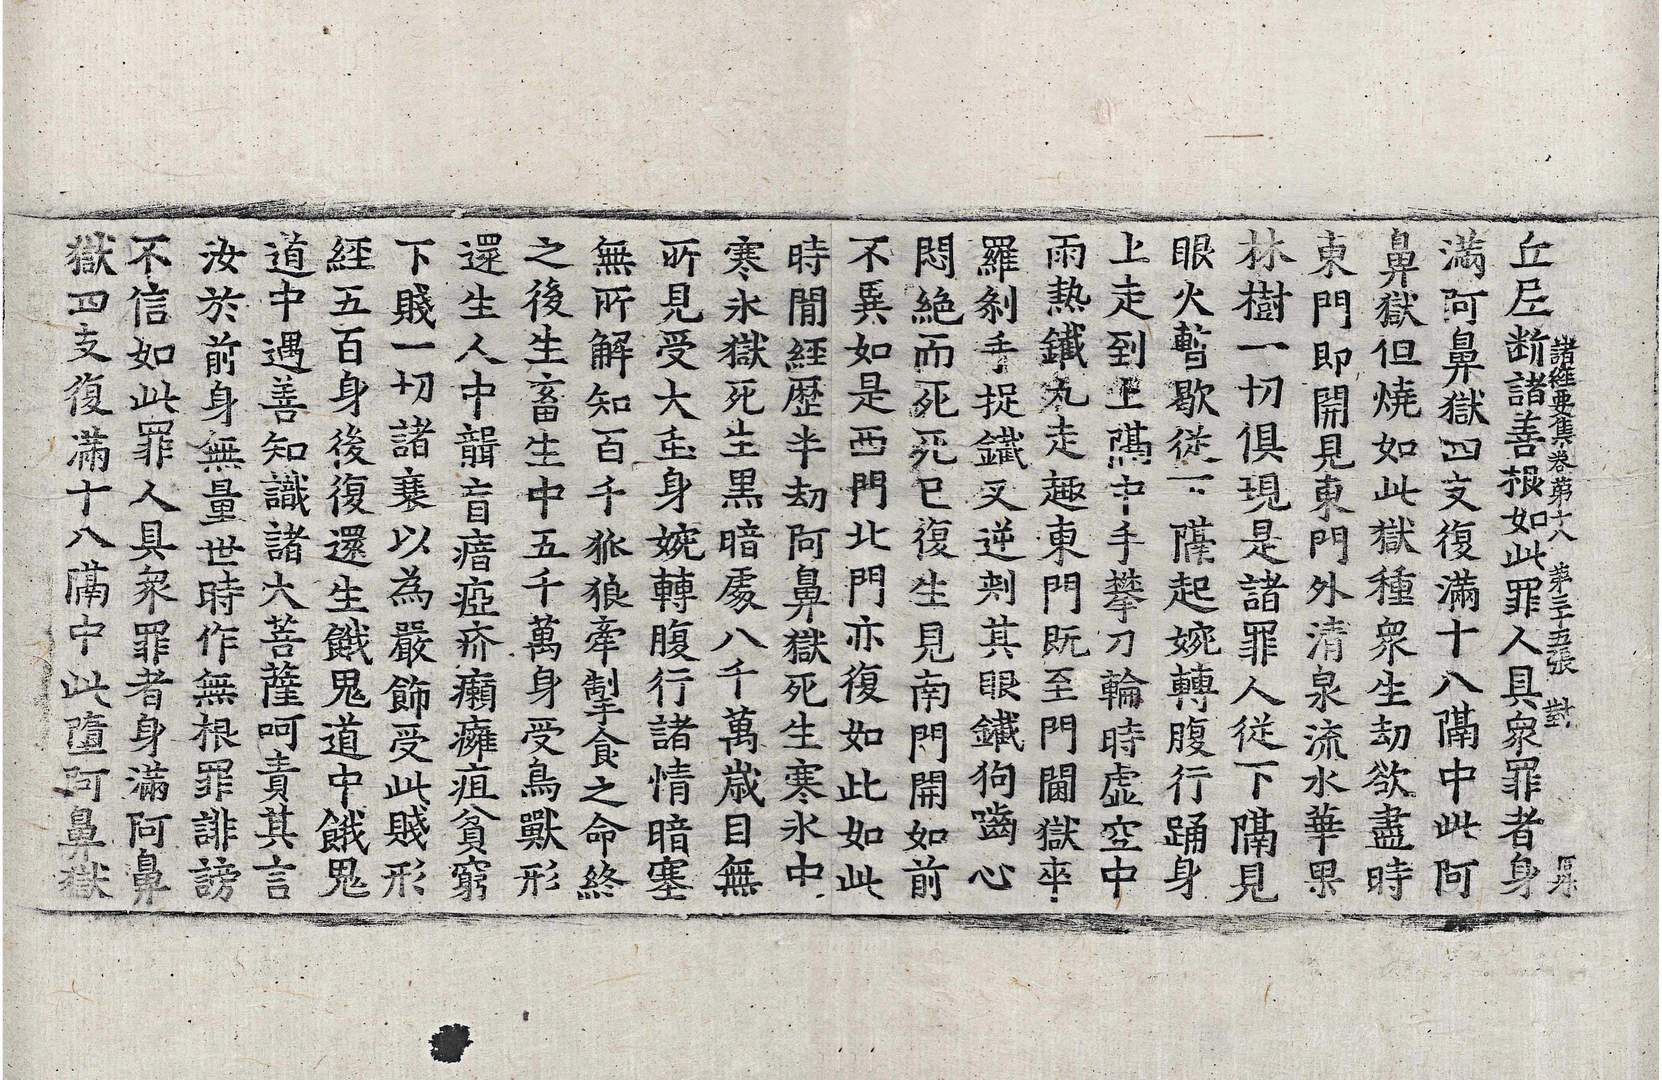 諸經要集卷第十八 第三十五張 對
丘尼断諸善根如此罪人具衆罪者身
滿阿鼻獄四支復滿十八隔中此阿
鼻獄但燒如此獄種衆生劫欲盡時
東門即開見東門外清泉流水華果
林樹一切俱現是諸罪人從下隔見
眼火暫歇從下隔起婉轉腹行踊身
上走到上隔中手攀刀輪時虛空中
雨熱鐵丸走趣東門既至門閫獄卒
羅剎手捉鐵叉逆刺其眼鐵狗嚙心
悶絶而死死已復生見南門開如前
不異如是西門北門亦復如此如此
時間經歷半劫阿鼻獄死生寒氷中
寒氷獄死生黑暗處八千萬歲目無
所見受大虫身婉轉腹行諸情暗塞
無所解知百千狐狼牽掣食之命終
之後生畜生中五千萬身受鳥獸形
還生人中聾盲瘖瘂疥癩癰疽貧窮
下賤一切諸衰以為嚴飾受此賤形
經五百身後復還生餓鬼道中餓鬼
道中遇善知識諸大菩薩呵責其言
汝於前身無量世時作無根罪誹謗
不信如此罪人具衆罪者身滿阿鼻
獄四支復滿十八隔中此墮阿鼻獄